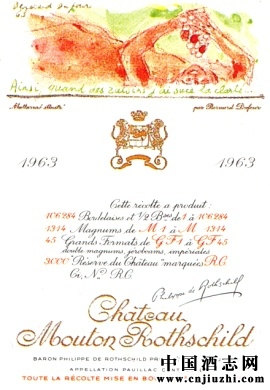 Bernard Dufour
63
Ainsi quand des raisins j'ai sucé la clarté...
par Bernard Dufour
1963
1963
Cette récolte a produit:
106284 Bordelaises et ½ Bses de 1 à 106284
1314 Magnums de M 1 à M 1314
45 Grands Formats de GF 1 à GF 45
double-magnums, jéroboams, impériales
3000 "Réserve du Château" marquées R.C.
Ci, No R.C.
Philippe de Rothschild
Château
Mouton Rothschild
BARON PHILIPPE DE ROTHSCHILD
APPELLATION PAUILLAC
TOUTE LA RÉCOLTE MISE EN
中国酒志网
www.cnjiuzhi.com